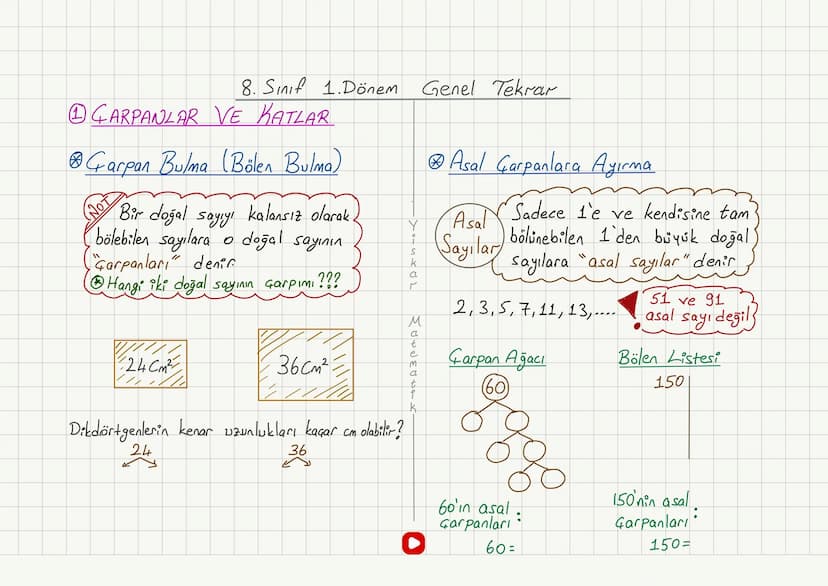 8. Sınıf 1.Dönem Genel Tekrar
1 ÇARPANLAR VE KATLAR
Çarpan Bulma (Bölen Bulma)
NOT
Bir doğal sayıyı kalansız olarak
bölebilen sayılara o doğal sayının
"çarpanları" denir
Hangi iki doğal sayının çarpımı???
24cm²
36cm²
Dikdörtgenlerin kenar uzunlukları kaçar cm olabilir?
24
36
Yiskar Matematik
Asal Çarpanlara Ayırma
Asal
Sayılar
Sadece 1'e ve kendisine tam
bölünebilen 1'den büyük doğal
sayılara "asal sayılar" denir
2, 3, 5, 7, 11, 13, ....
51 ve 91
asal sayı değil
Çarpan Ağacı
60
60'ın asal
çarpanları :
60=
Bölen Listesi
150
150'nin asal
çarpanları :
150=